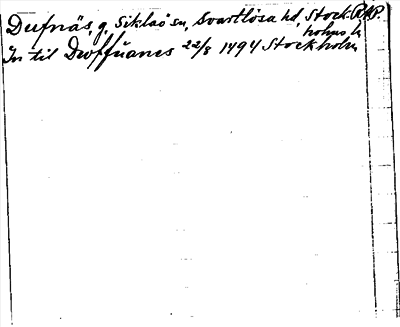 Dufnäs, g. Siklaö sn, Svartlösa hd, Stock- RAP.
holms l.
In til Dwffuanes 22/8 1494 Stockholm